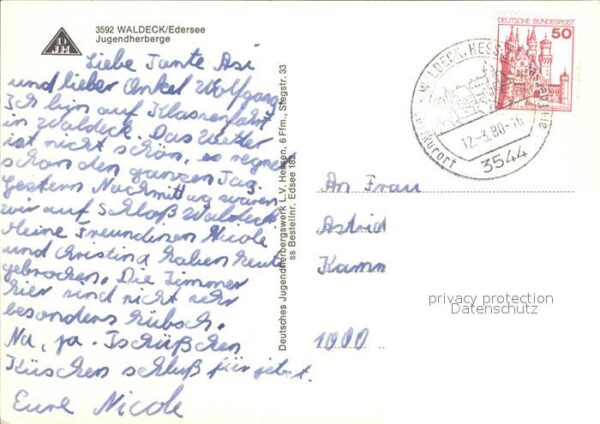 3592 WALDECK/Edersee
Jugendherberge
DJH
Liebe Tante Asi
und lieber Onkel Wolfgang
Ich bin auf Klassenfahrt
in Waldeck. Das Wetter
ist nicht schön, es regnet
schon den ganzen Tag.
Gestern Nachmittag waren
wir auf Schloß Waldeck
Meine Freundinen Nicole
und Christina haben heute
gebrochen. Die Zimmer
hier sind nicht sehr
besonders hübsch.
Na, ja. Tschüßchen
Küschen schluß für jetzt.
Eure Nicole
Deutsches Jugendherbergswerk L.V. Hessen, 6 Ffm., Stegstr. 33
ss Bestellnr. Edsee 183
DEUTSCHE BUNDESPOST
50
WALDECK, HESS
12.-3.80-16
3544
An Frau
Astrid
Kamm
1000
privacy protection
Datenschutz